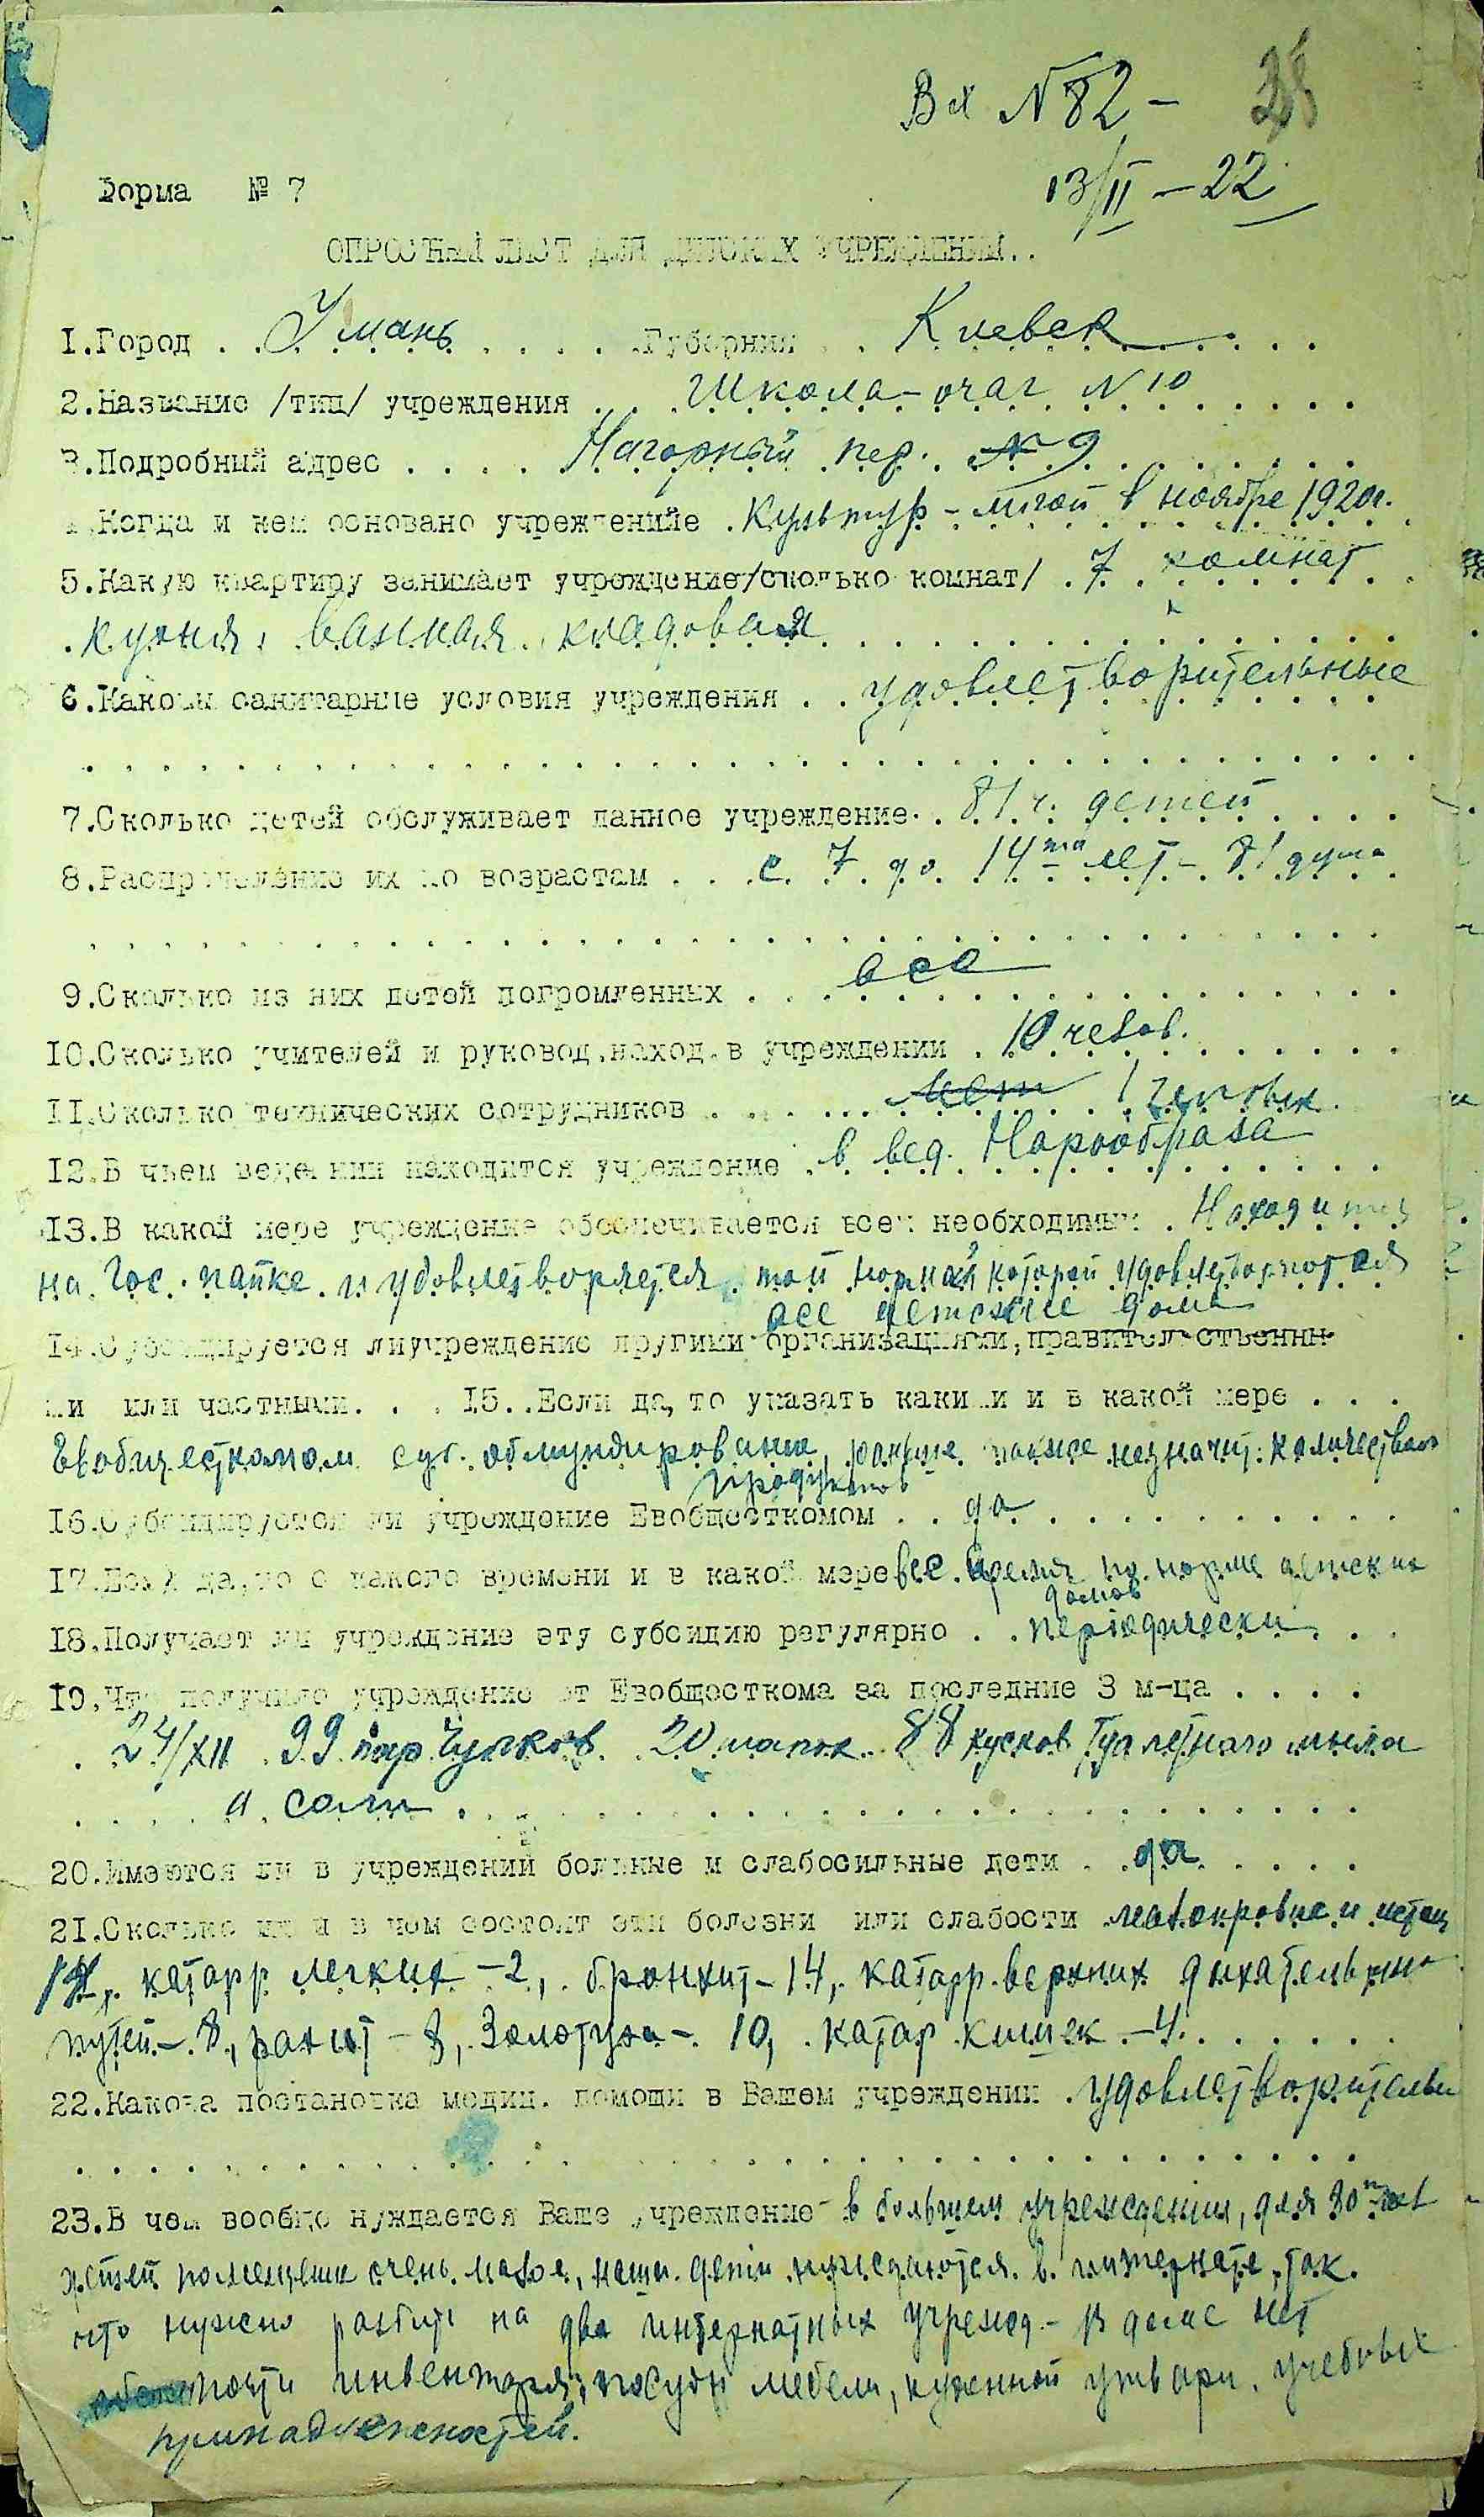 Вх N 82 – 28
13/II – 22
Форма № 7
ОПРОСНЫЙ ЛИСТ ДЛЯ ДЕТСКИХ УЧРЕЖДЕНИЙ..
I.Город . . Умань . . . . . Губернии . . Киевск . . . .
2.Название /тип/ учреждения . . . Школа-очаг N 10 . . . .
3.Подробный адрес . . . . Нагорный пер. N 9 . . . . .
4.Когда и кем основано учреждениие . Культур-лигой в ноябре 1920г.
5.Какую квартиру занимает учреждение/сколько комнат/ . 7 комнат . .
. кухня, ванная, кладовая . . . . . . . . . .
6.Каковы санитарные условия учреждения . . удовлетворительные
7.Сколько детей обслуживает данное учреждение. . 81 ч. детей . . . .
8.Распределение их по возрастам . . . с 7 до 14ти лет – 81 душа
9.Сколько из них детей погромленных . . . все . . . . . .
10.Сколько учителей и руковод.наход.в учреждении . 10 челов. . . . .
II.Сколько технических сотрудников . . . . . . нет 1 человек.
12.В чьем ведении находится учреждение . в вед. Наробраза . .
13.В какой мере учреждение обеспечивается всем необходимым . Находится
на Гос. пайке и удовлетворяется той нормой, которой удовлетворяются
все детские дома
14.Субсидируется лиучреждение другими организациями,правительственны-
ми или частными. . . 15..Если да, то указать какими и в какой мере . . .
Евобщесткомом суб. обмундирование, раньше также незначит. количеством
продуктов
16.Субсидируется ли учреждение Евобщесткомом . . да . . . . . .
17.Если да,то с какого времени и в какой мере все время по норме детских
домов
18.Получает ли учреждение эту субсидию регулярно . . періодически . . .
19.Что получило учреждение от Евобщесткома за последние 3 м-ца . . . .
. 24/XII 99 пар чулков 20 шапок 88 кусков туалетнаго мыла
. . . . и соли . . . . . . . .
20.Имеются ли в учреждений больные и слабосильные дети . . да . . . . .
21.Сколько их и в чем состоят эти болезни или слабости малокровие и истощ
катарр легких – 2, бронхит – 14, катарр верхних дыхательных
путей – 8, рахит – 8, Золотуха – 10, катар кишек – 4. . . . . .
22.Какова постановка медиц. помощи в Вашем учреждении . удовлетворительн
23.В чем вообще нуждается Ваше учреждение в большем учреждении, для 80ти чел
детей помещение очень малое, наши дети нуждаются в интернате, так.
что нужно разбить на два интернатных учрежд. – В доме нет
почти инвентаря: посуды мебели, кухонной утвари, учебных
принадлежностей.